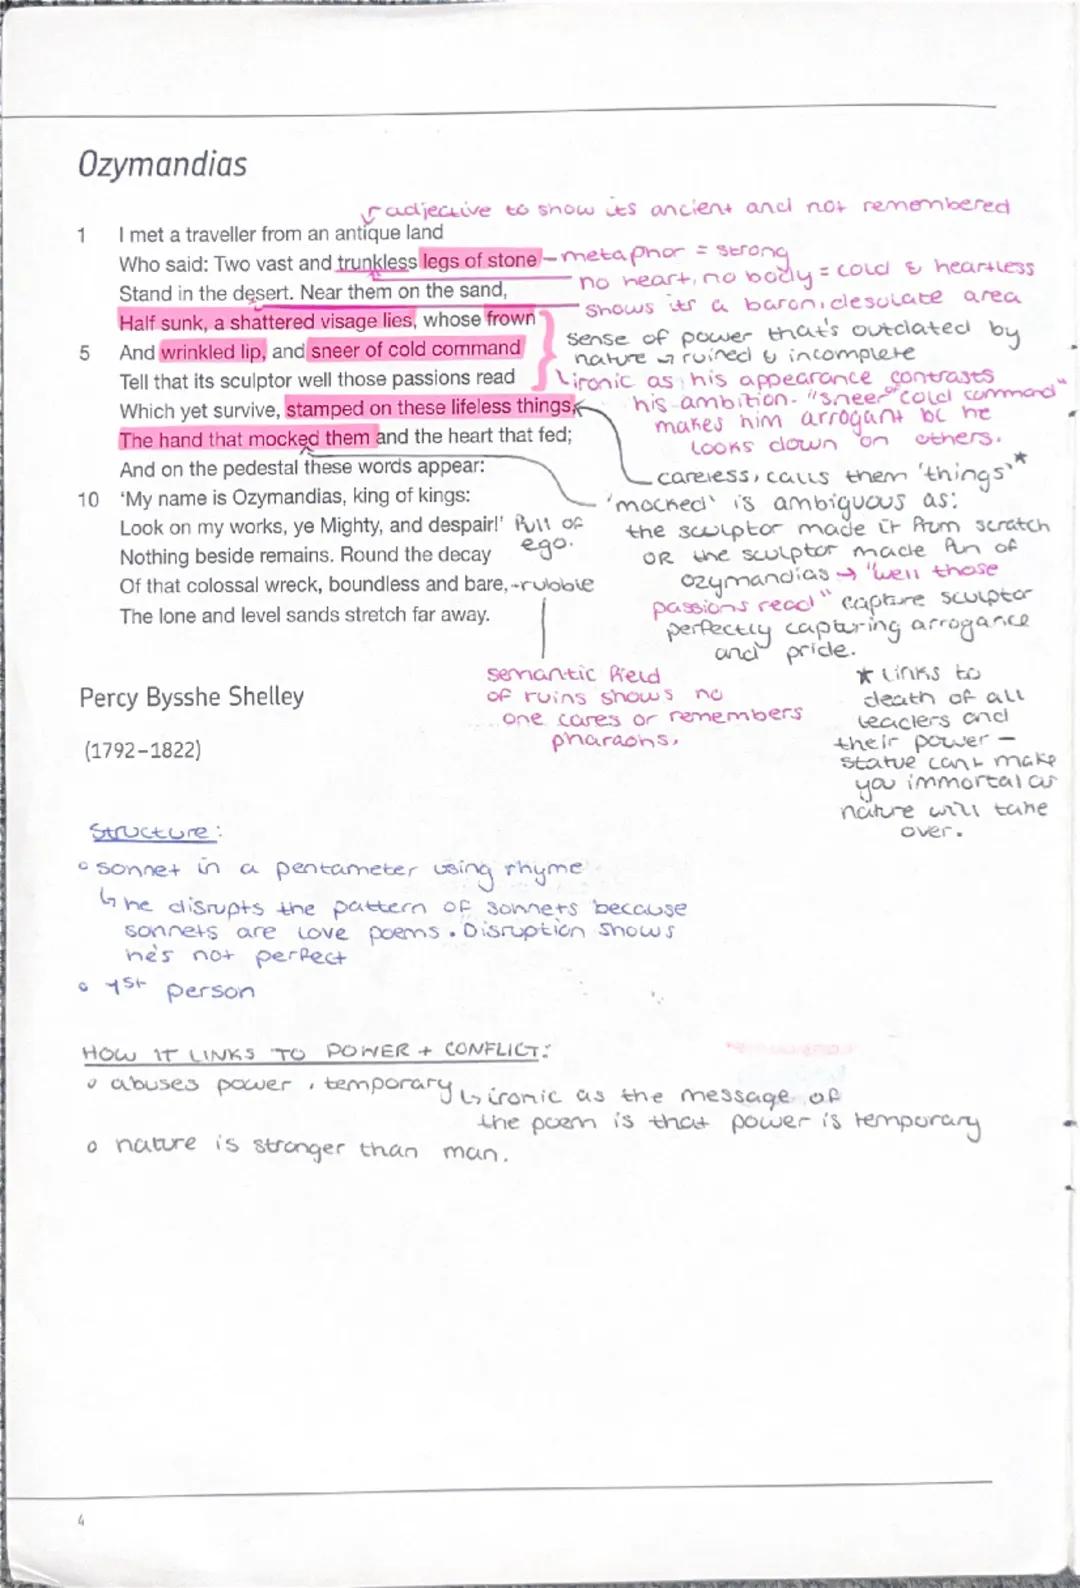 Ozymandias
adjective to show its ancient and not remembered
1 I met a traveller from an antique land
Who said: Two vast and trunkless legs of stone – metaphor = strong
no heart, no body = cold & heartless
Stand in the desert. Near them on the sand,
shows its a baron, desolate area
Half sunk, a shattered visage lies, whose frown
5 And wrinkled lip, and sneer of cold command
Tell that its sculptor well those passions read
Which yet survive, stamped on these lifeless things,
The hand that mocked them and the heart that fed;
And on the pedestal these words appear:
10 ‘My name is Ozymandias, king of kings:
Look on my works, ye Mighty, and despair!’ full of
ego.
Nothing beside remains. Round the decay
Of that colossal wreck, boundless and bare, - rubble
The lone and level sands stretch far away.
sense of power that's outdated by
nature → ruined & incomplete
ironic as his appearance contrasts
his ambition. "sneer of cold command"
makes him arrogant bc he
looks down on others.
careless, calls them 'things' *
'mocked' is ambiguous as:
the sculptor made it from scratch
OR the sculptor made fun of
ozymandias → "well those
passions read" capture sculptor
perfectly capturing arrogance
and pride.
semantic field
of ruins shows no
one cares or remembers
pharaohs.
* links to
death of all
leaders and
their power –
statue cant make
you immortal as
nature will take
over.
Percy Bysshe Shelley
(1792–1822)
Structure:
• sonnet in a pentameter using rhyme
↳ he disrupts the pattern of sonnets because
sonnets are love poems. Disruption shows
he's not perfect
• 1st person
HOW IT LINKS TO POWER + CONFLICT:
• abuses power, temporary
↳ ironic as the message of
the poem is that power is temporary
• nature is stronger than man.
4